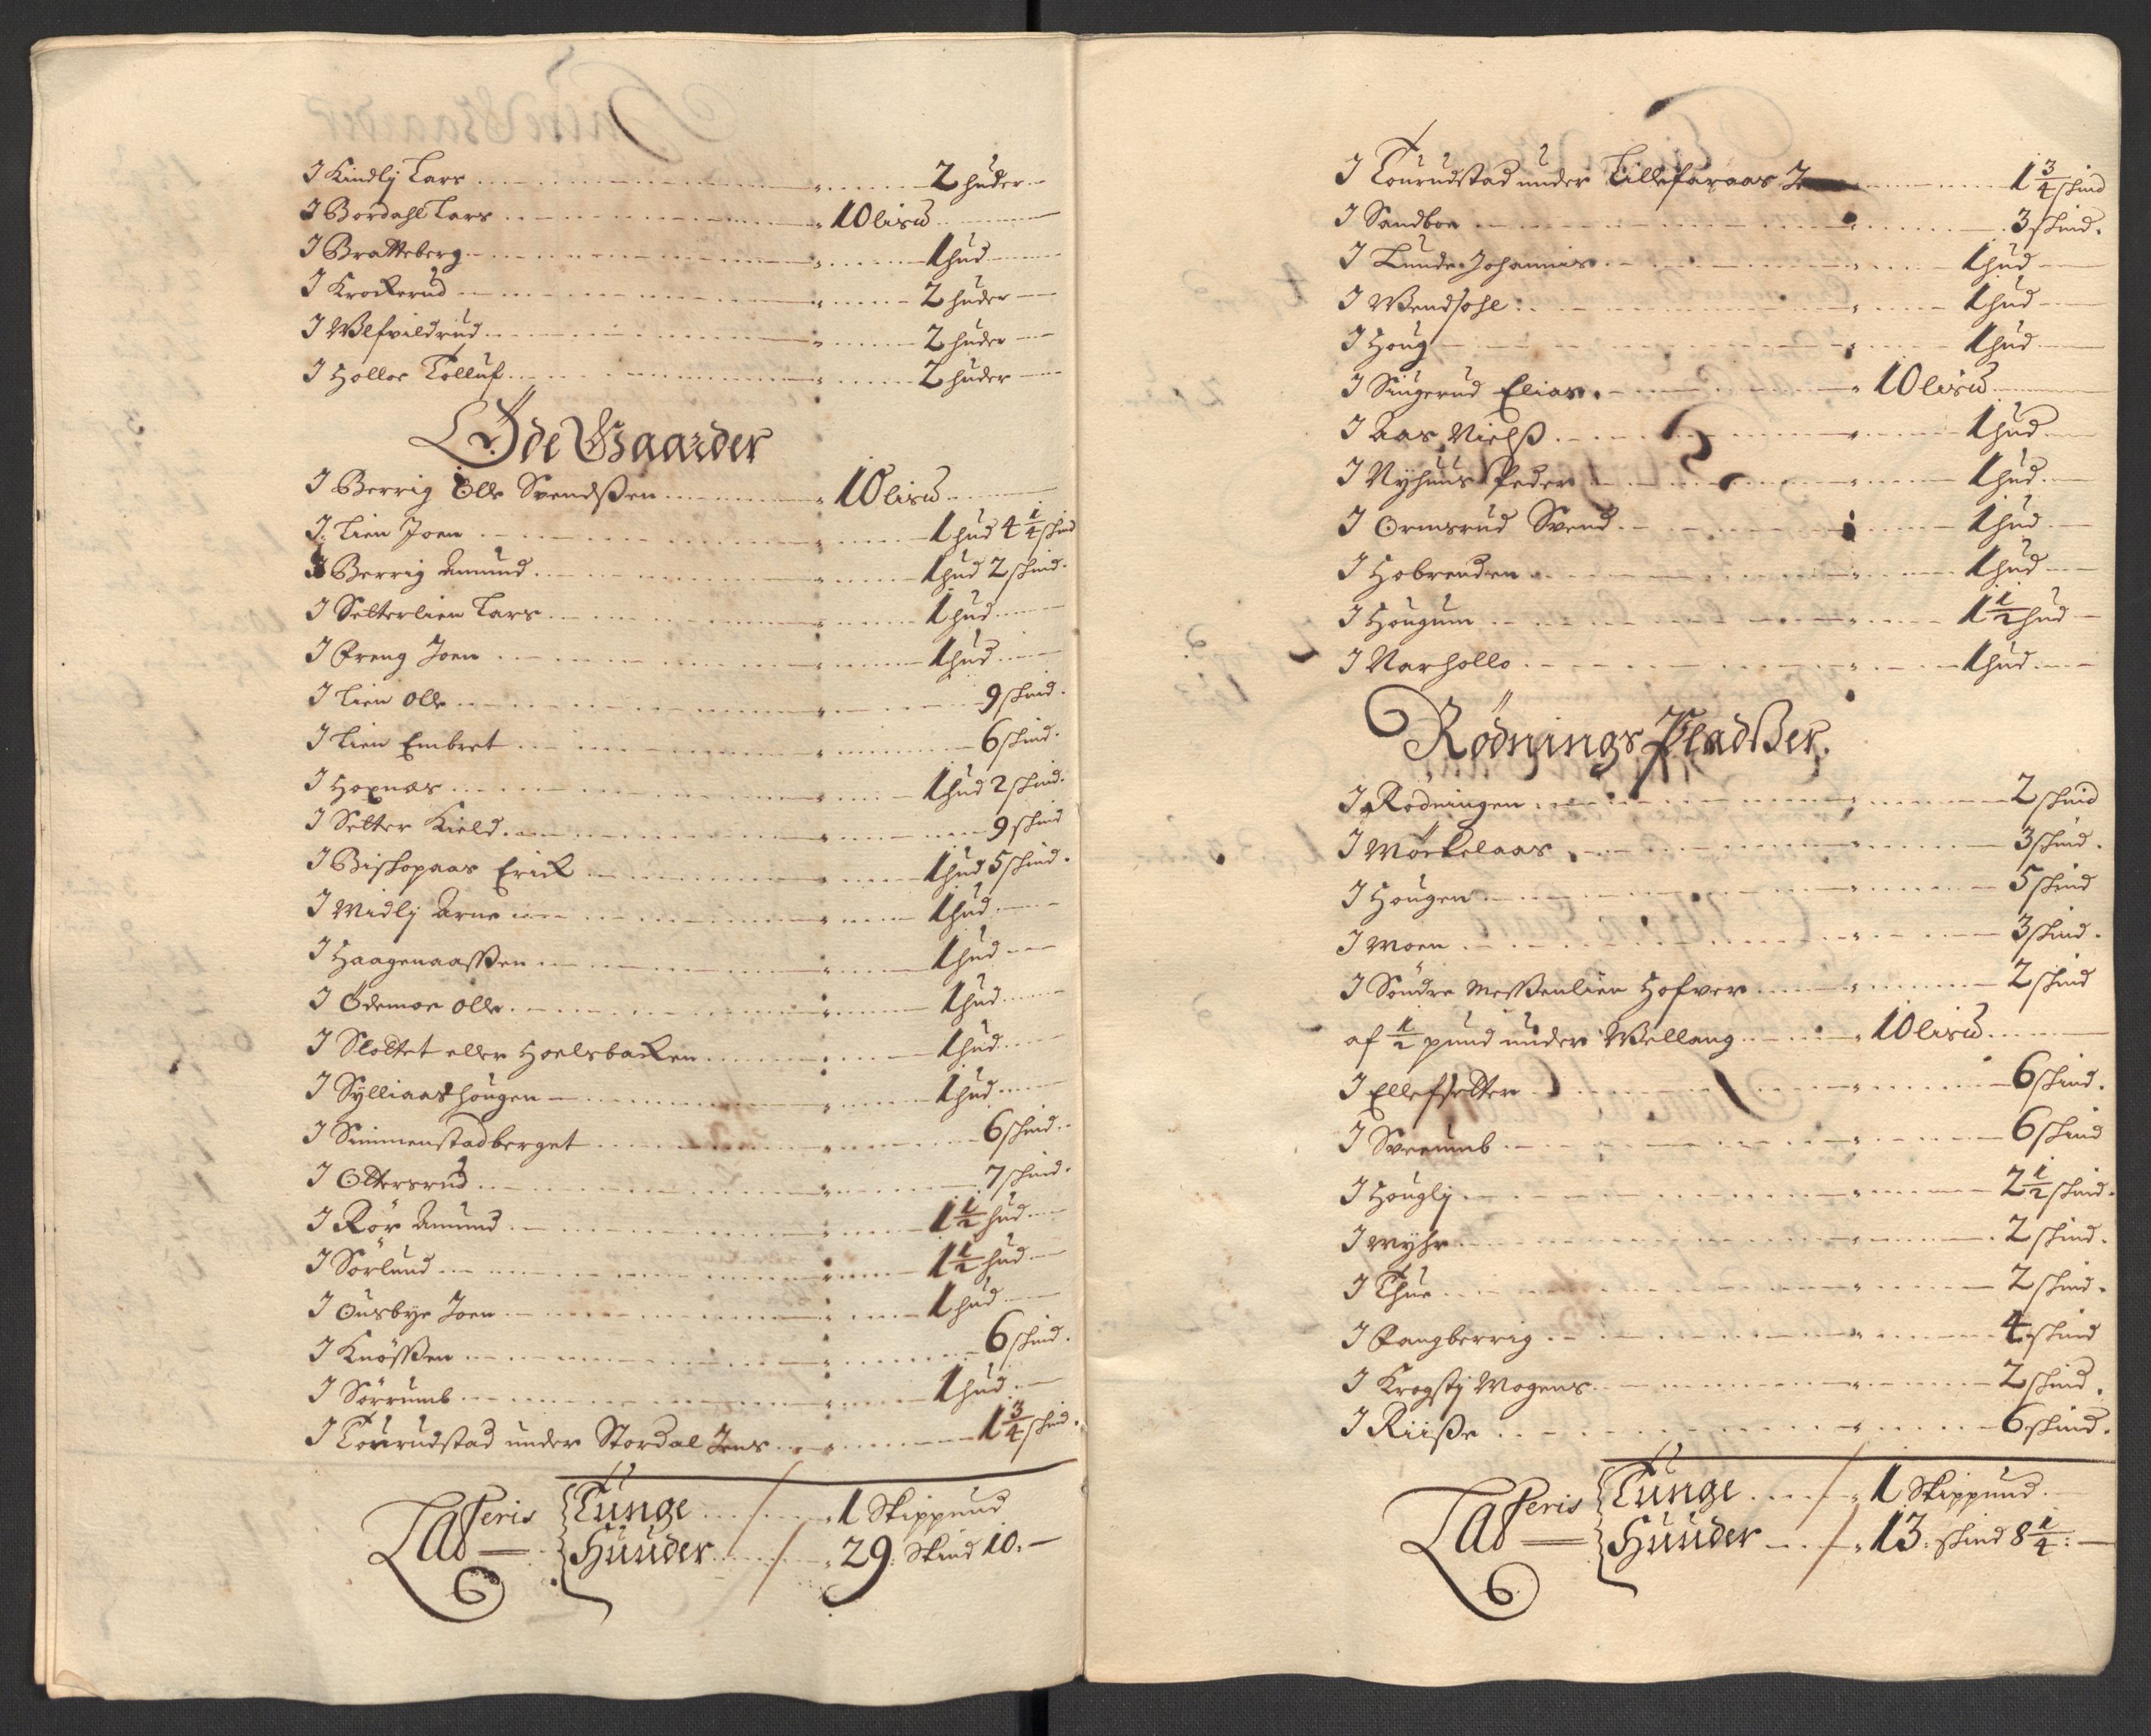 I Kindly Lars 2 huder
I Bordahl Lars 10 lis℔
I Bratteberg 1 hud
I Krockerud 2 huder
I Ulfvildrud 2 huder
I Holloe Tolluf 2 huder
Øde Gaarder
I Berrig Olle Svendsßen 10 lis℔
I Lien Joen 1 hud 4 1/4 skind
I Berrig Amund 1 hud 2 skind.
I Setterlien Lars 1 hud
I Eng Joen 1 hud
I Lien Olle 9 skind.
I Lien Embret 6 skind.
I Hoxnæs 1 hud 2 skind.
I Setter Kield 9 skind
I Biskopaas Erick 1 hud 5 skind.
I Midly Arne 1 hud
I Haagenaasßen 1 hud
I Ödemoe Olle 1 hud
I Slottet eller Hoelsbacken 1 hud
I Sylliaas hougen 1 hud
I Simmenstadberget 6 skind
I Ottersrud 7 skind.
I Rör Amund 1 1/2 hud
I Sörlund 1 1/2 hud
I Ousbye Joen 1 hud
I Knösßen 6 skind.
I Sörrumb 1 hud
I Tourudstad under Stordal Jens 1 3/4 skind.
Lateris Tunge 1 Skippund
Huuder 29. Skind 10.
I Tourudstad under Lillefaraas 1 3/4 skind
I Sandboe 3 skind.
I Lunde Johannis 1 hud
I Wendsohl 1 hud
I Houg 1 hud
I Singerud Elias 10 lis℔
I Aas Nielß 1 hud
I Nyhuus Peder 1 hud
I Ormsrud Svend 1 hud
I Hobrenden 1 hud
I Hougum 1 1/2 hud
I Narhollo 1 hud
Rødnings Pladßer.
I Rödningen 2 skind
I Mörkelaas 3 skind.
I Hougen 5 skind
I Moen 3 skind.
I Söndre Messenlien Hofver 2 skind
af 1/2 pund under Wellang 10 lis℔
I Ellefsetter 6 skind.
I Sveumb 6 skind
I Hougly 2 1/2 skind.
I Myhr 2 skind.
I Thue 2 skind.
I Rangberrig 4 skind
I Krogsty Mogens 2 skind.
I Riiße 6 skind.
Lateris Tunge 1 Skippund.
Huuder 13. skind 8 1/4.